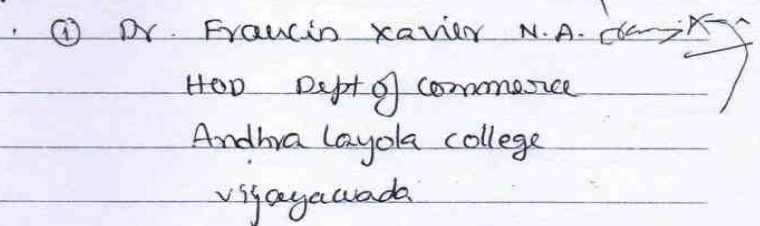 ① Dr. Francis Xavier N.A.
HOD Dept of Commerce
Andhra Layola College
Vijayawada